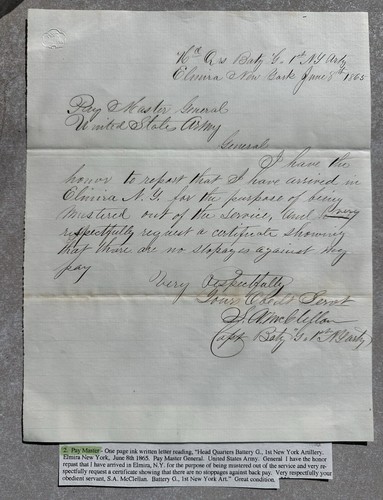 Hd Qrs Baty "G" 1st NY Arty
Elmira New York June 8th 1865
Pay Master General
United States Army
General
I have the
honor to report that I have arrived in
Elmira N.Y. for the purpose of being
mustered out of the service, and very
respectfully request a certificate showing
that there are no stopages against my
pay
Very respectfully
Your Obedt Servt
S. A. McClellan
Capt Baty "G" 1st NY Arty
2. Pay Master- One page ink written letter reading, "Head Quarters Battery G., 1st New York Artillery.
Elmira New York, June 8th 1865. Pay Master General. United States Army. General I have the honor
repast that I have arrived in Elmira, N.Y. for the purpose of being mustered out of the service and very re-
spectfully request a certificate showing that there are no stoppages against back pay. Very respectfully your
obedient servant, S.A. McClellan. Battery G., 1st New York Art." Great condition.